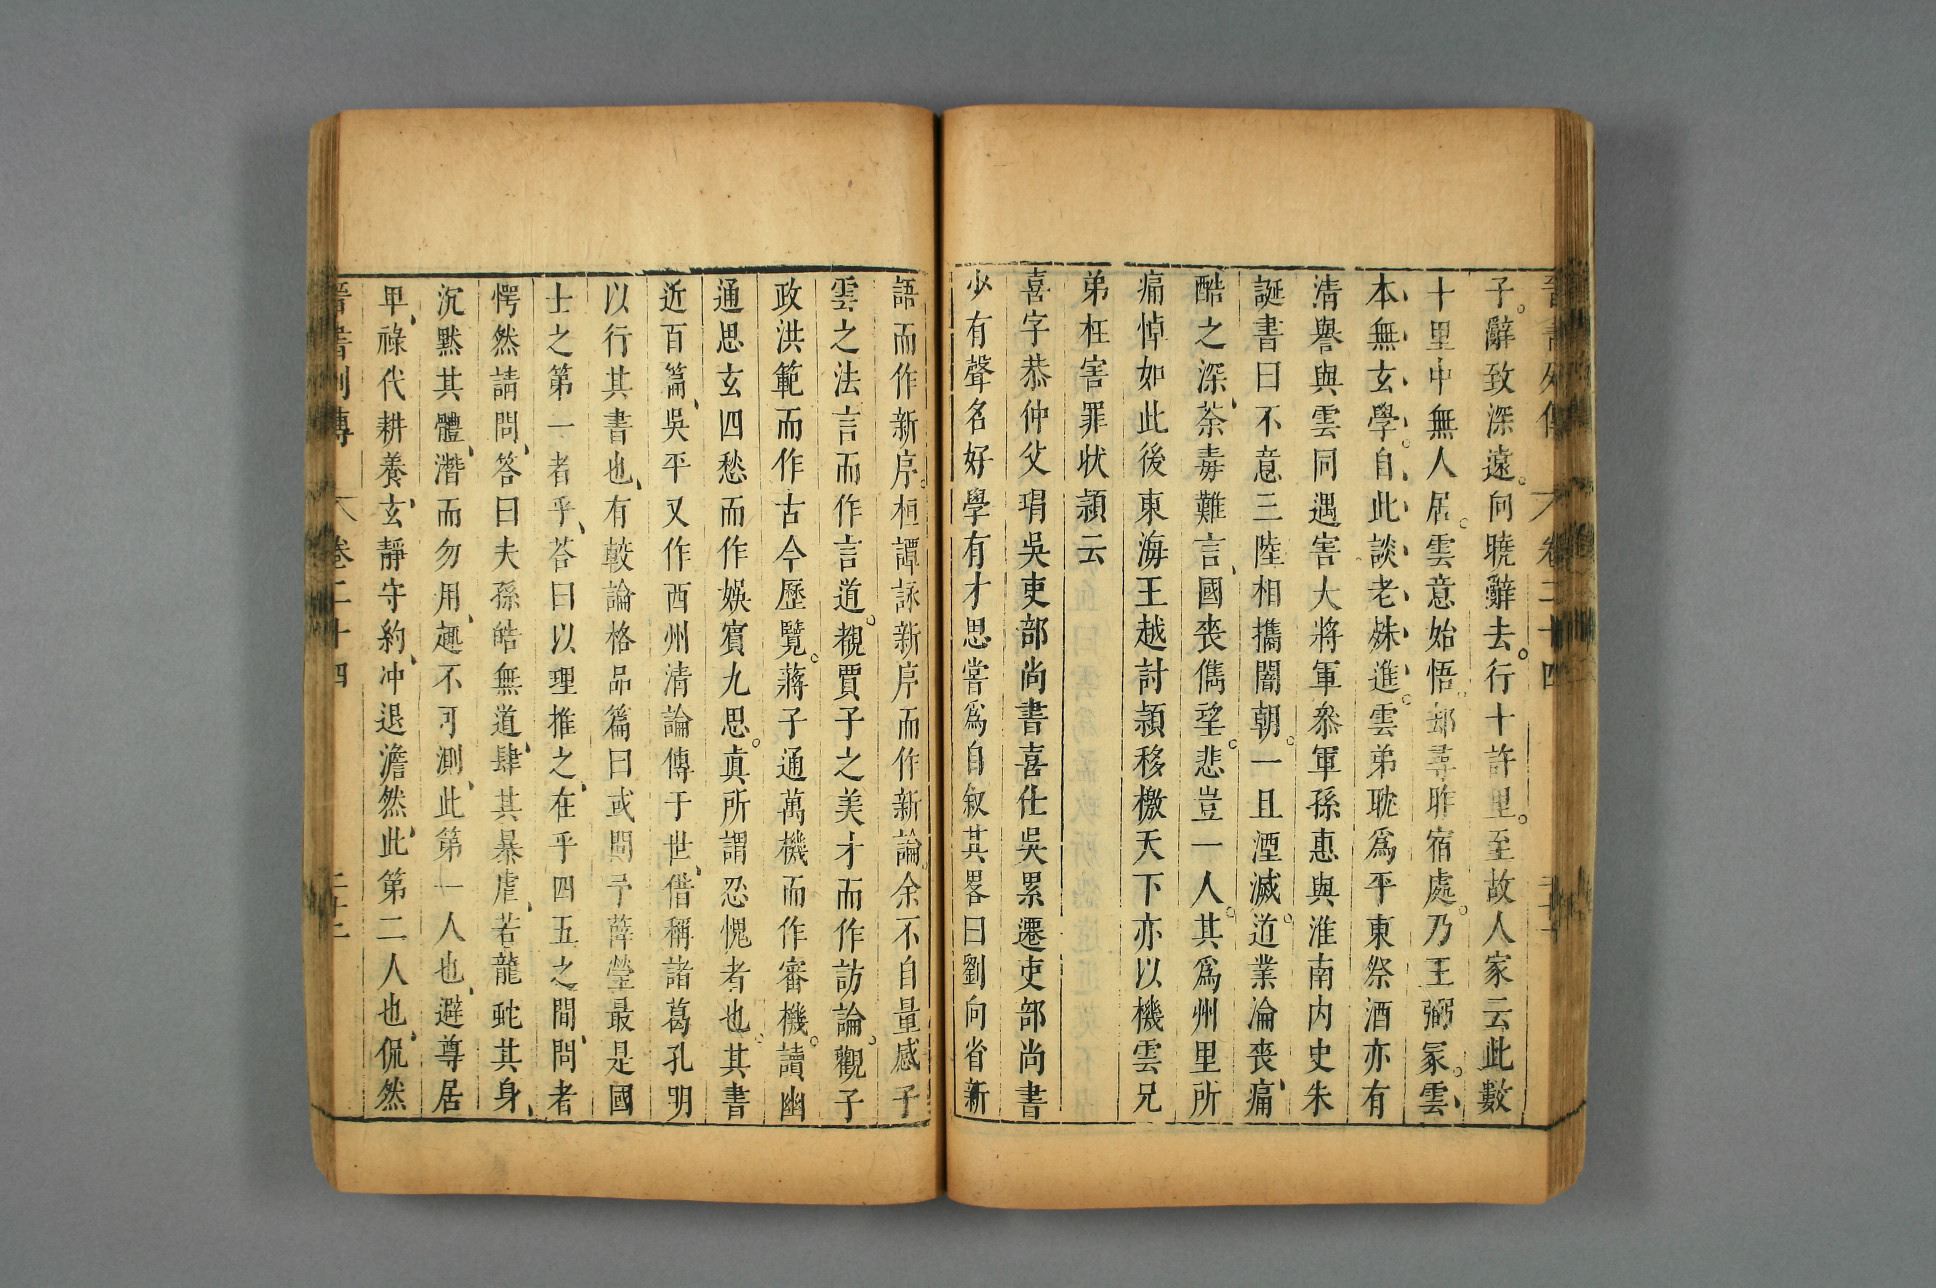 晉書列傳 卷二十四
子辭致深遠向曉辭去行十許里至故人家云此數
十里中無人居雲意始悟却尋昨宿處乃王弼冢雲
本無玄學自此談老殊進雲弟耽爲平東祭酒亦有
清譽與雲同遇害大將軍叅軍孫惠與淮南内史朱
誕書曰不意三陸相攜闇朝一旦湮滅道業淪喪痛
酷之深荼毒難言國喪儁望悲豈一人其爲州里所
痛悼如此後東海王越討潁移檄天下亦以機雲兄
弟枉害罪狀潁云
喜字恭仲父瑁吳吏部尚書喜仕吳累遷吏部尚書
少有聲名好學有才思嘗爲自叙其畧曰劉向省新
語而作新序桓譚詠新序而作新論余不自量感子
雲之法言而作言道覩賈子之美才而作訪論觀子
政洪範而作古今歷覽蔣子通萬機而作審機讀幽
通思玄四愁而作娛賓九思真所謂忍愧者也其書
近百篇吳平又作西州清論傳于世借稱諸葛孔明
以行其書也有較論格品篇曰或問予薛瑩最是國
士之第一者乎荅曰以理推之在乎四五之間問者
愕然請問答曰夫孫皓無道肆其暴虐若龍蛇其身
沉默其體潛而勿用趣不可測此第一人也避尊居
卑祿代耕養玄靜守約冲退澹然此第二人也侃然
晉書列傳 卷二十四 二十二